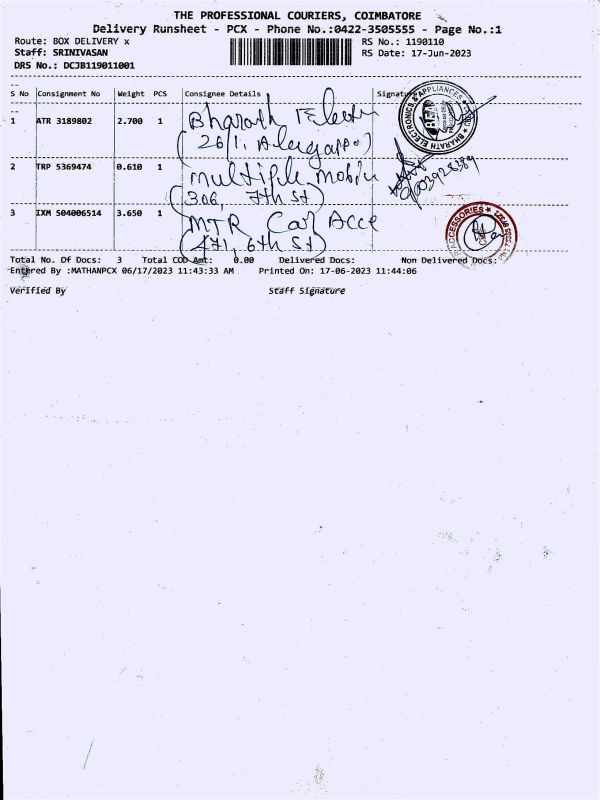 THE PROFESSIONAL COURIERS, COIMBATORE
Delivery Runsheet - PCX - Phone No.:0422-3505555 - Page No.:1
Route: BOX DELIVERY x RS No.: 1190110
Staff: SRINIVASAN RS Date: 17-Jun-2023
DRS No.: DCJB119011001
S No Consignment No Weight PCS Consignee Details Signature
1 ATR 3189802 2.700 1 Bharath
(26/1,
BHARATH ELECTRONICS & APPLIANCES
2 TRP 5369474 0.610 1 multiple mobile
(306, 7th st)
3 IXM 504006514 3.650 1 MTR Car Acce
(471, 6th st)
ACCESSORIES
Total No. Of Docs: 3 Total COD Amt: 0.00 Delivered Docs: Non Delivered Docs:
Entered By :MATHANPCX 06/17/2023 11:43:33 AM Printed On: 17-06-2023 11:44:06
Verified By Staff Signature